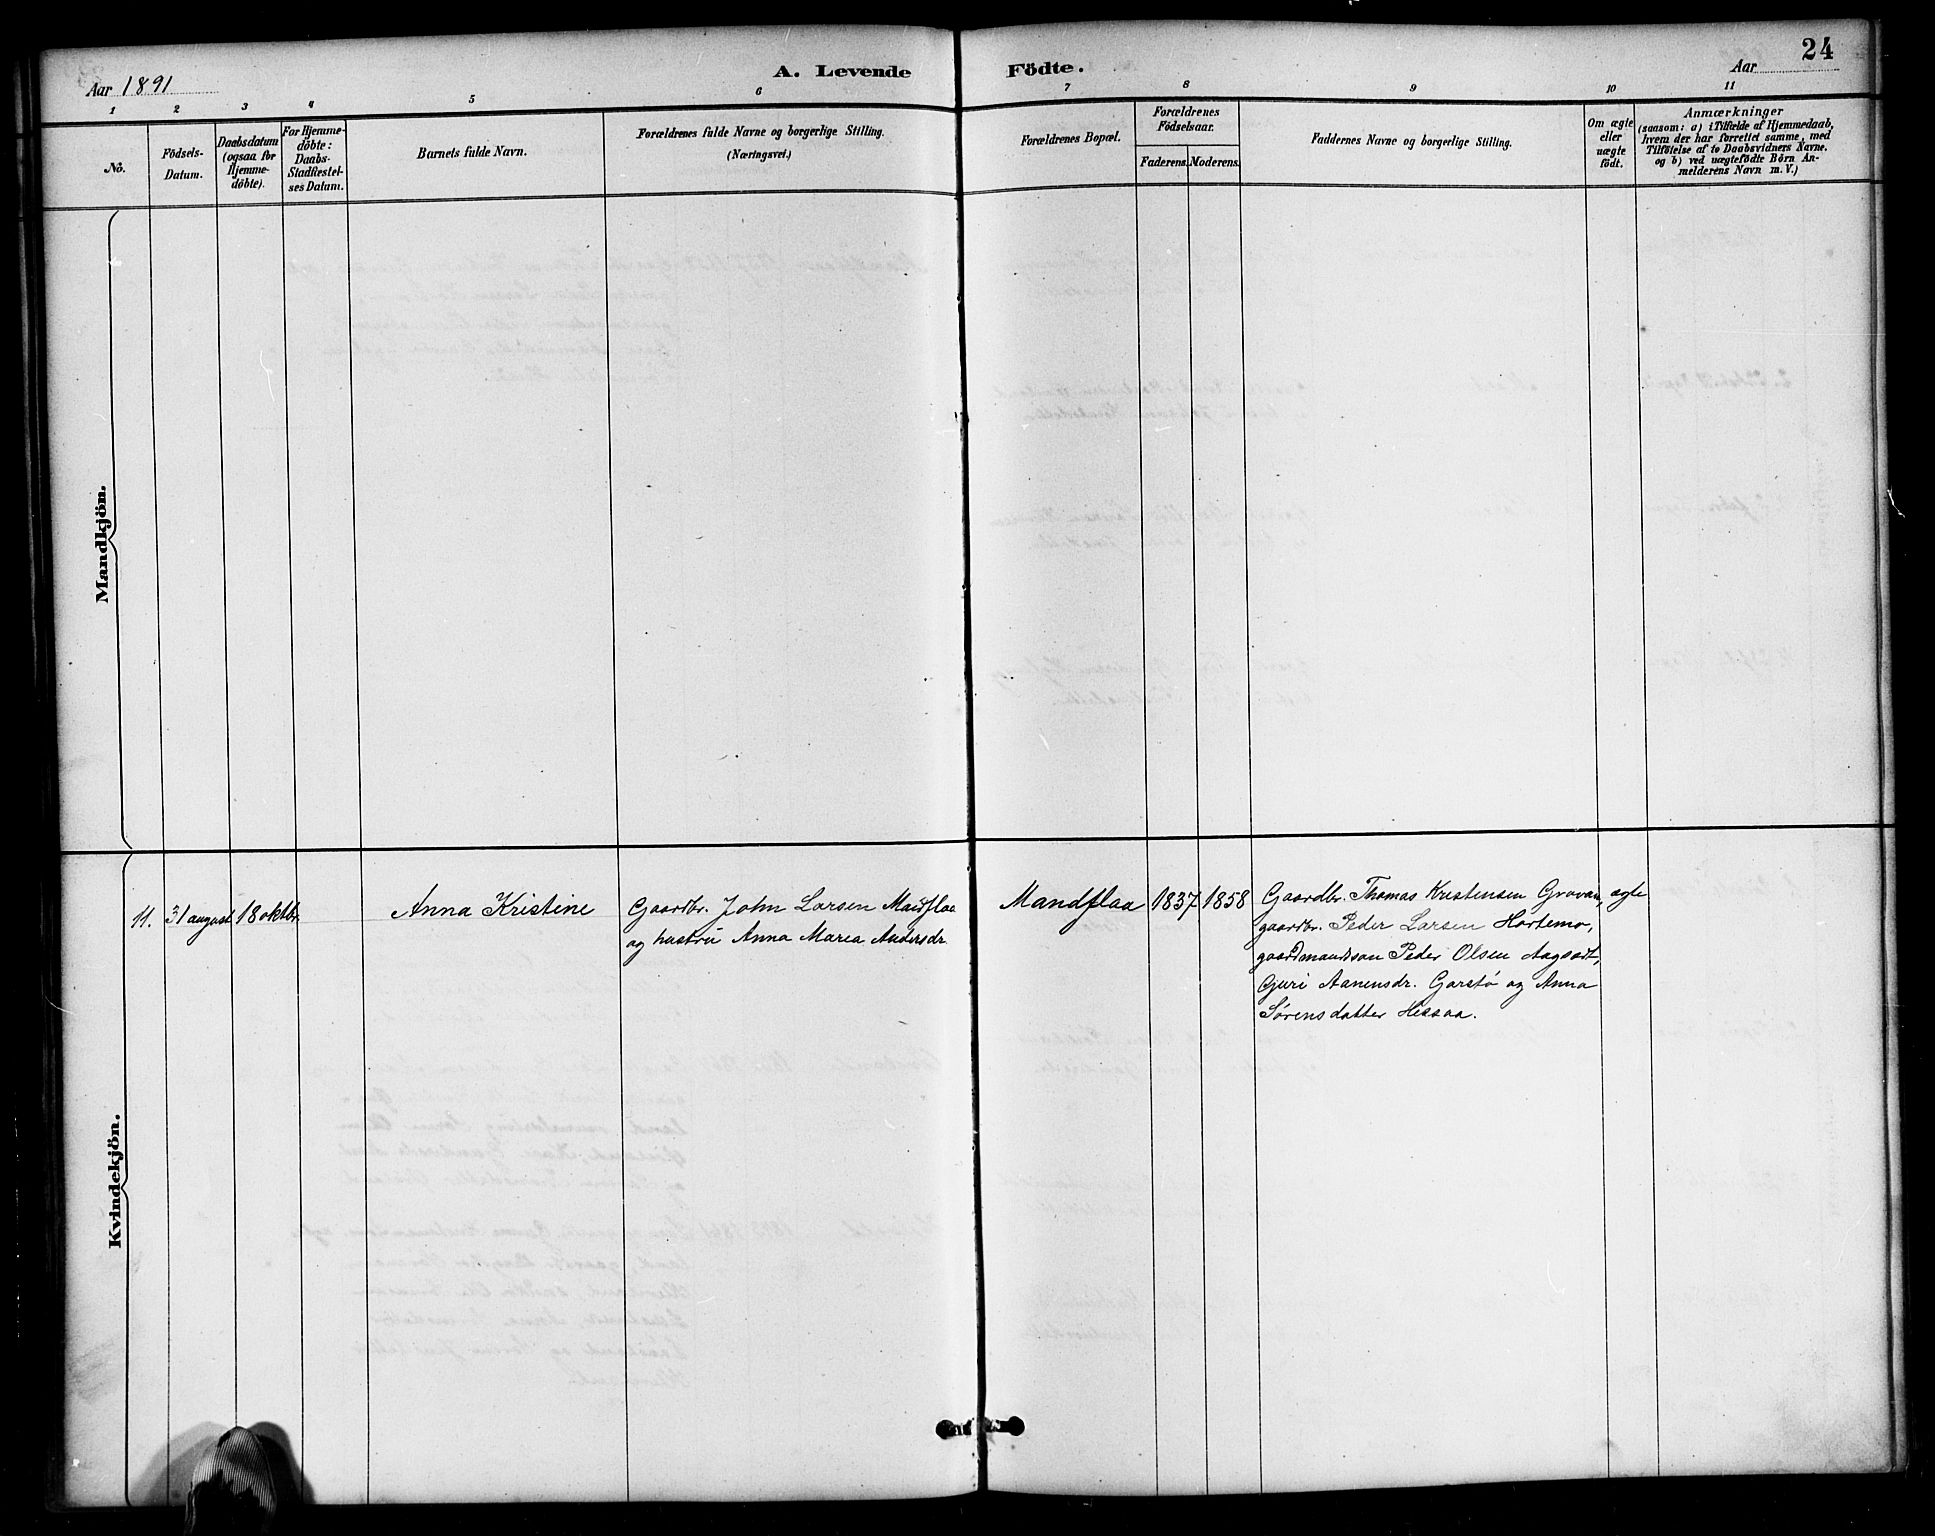 24
Aar 1891
A. Levende Födte.
Aar
1 2 3 4 5 6 7 8 9 10 11
No.
Födsels-
Datum.
Daabsdatum
(ogsaa for
Hjemme-
döbte).
For Hjemme-
döbte:
Daabs-
Stadfæstel-
ses Datum.
Barnets fulde Navn.
Forældrenes fulde Navne og borgerlige Stilling.
(Næringsvei.)
Forældrenes Bopæl.
Forældrenes
Födselsaar.
Faderens. Moderens.
Faddernes Navne og borgerlige Stilling.
Om ægte
eller
uægte
födt.
Anmærkninger
(saasom: a) i Tilfælde af Hjemmedaab,
hvem der har forrettet samme, med
Tilföielse af to Daabsvidners Navne.
og b) ved uægtefödte Börn An-
melderens Navn m. V.)
Mandkjön.
Kvindekjön.
11. 31 august 18 oktbr.
Anna Kristine
Gaardbr. John Larsen Mandflaa
og hustru Anna Maria Andersdr.
Mandflaa
1837 1858
Gaardbr. Thomas Kristensen Grovan,
gaardbr. Peder Larsen Hortemo,
gaardmandsson Peder Olsen Aagsødt,
Guri Aanensdr. Garstø og Anna
Sørensdatter Hessaa.
ægte